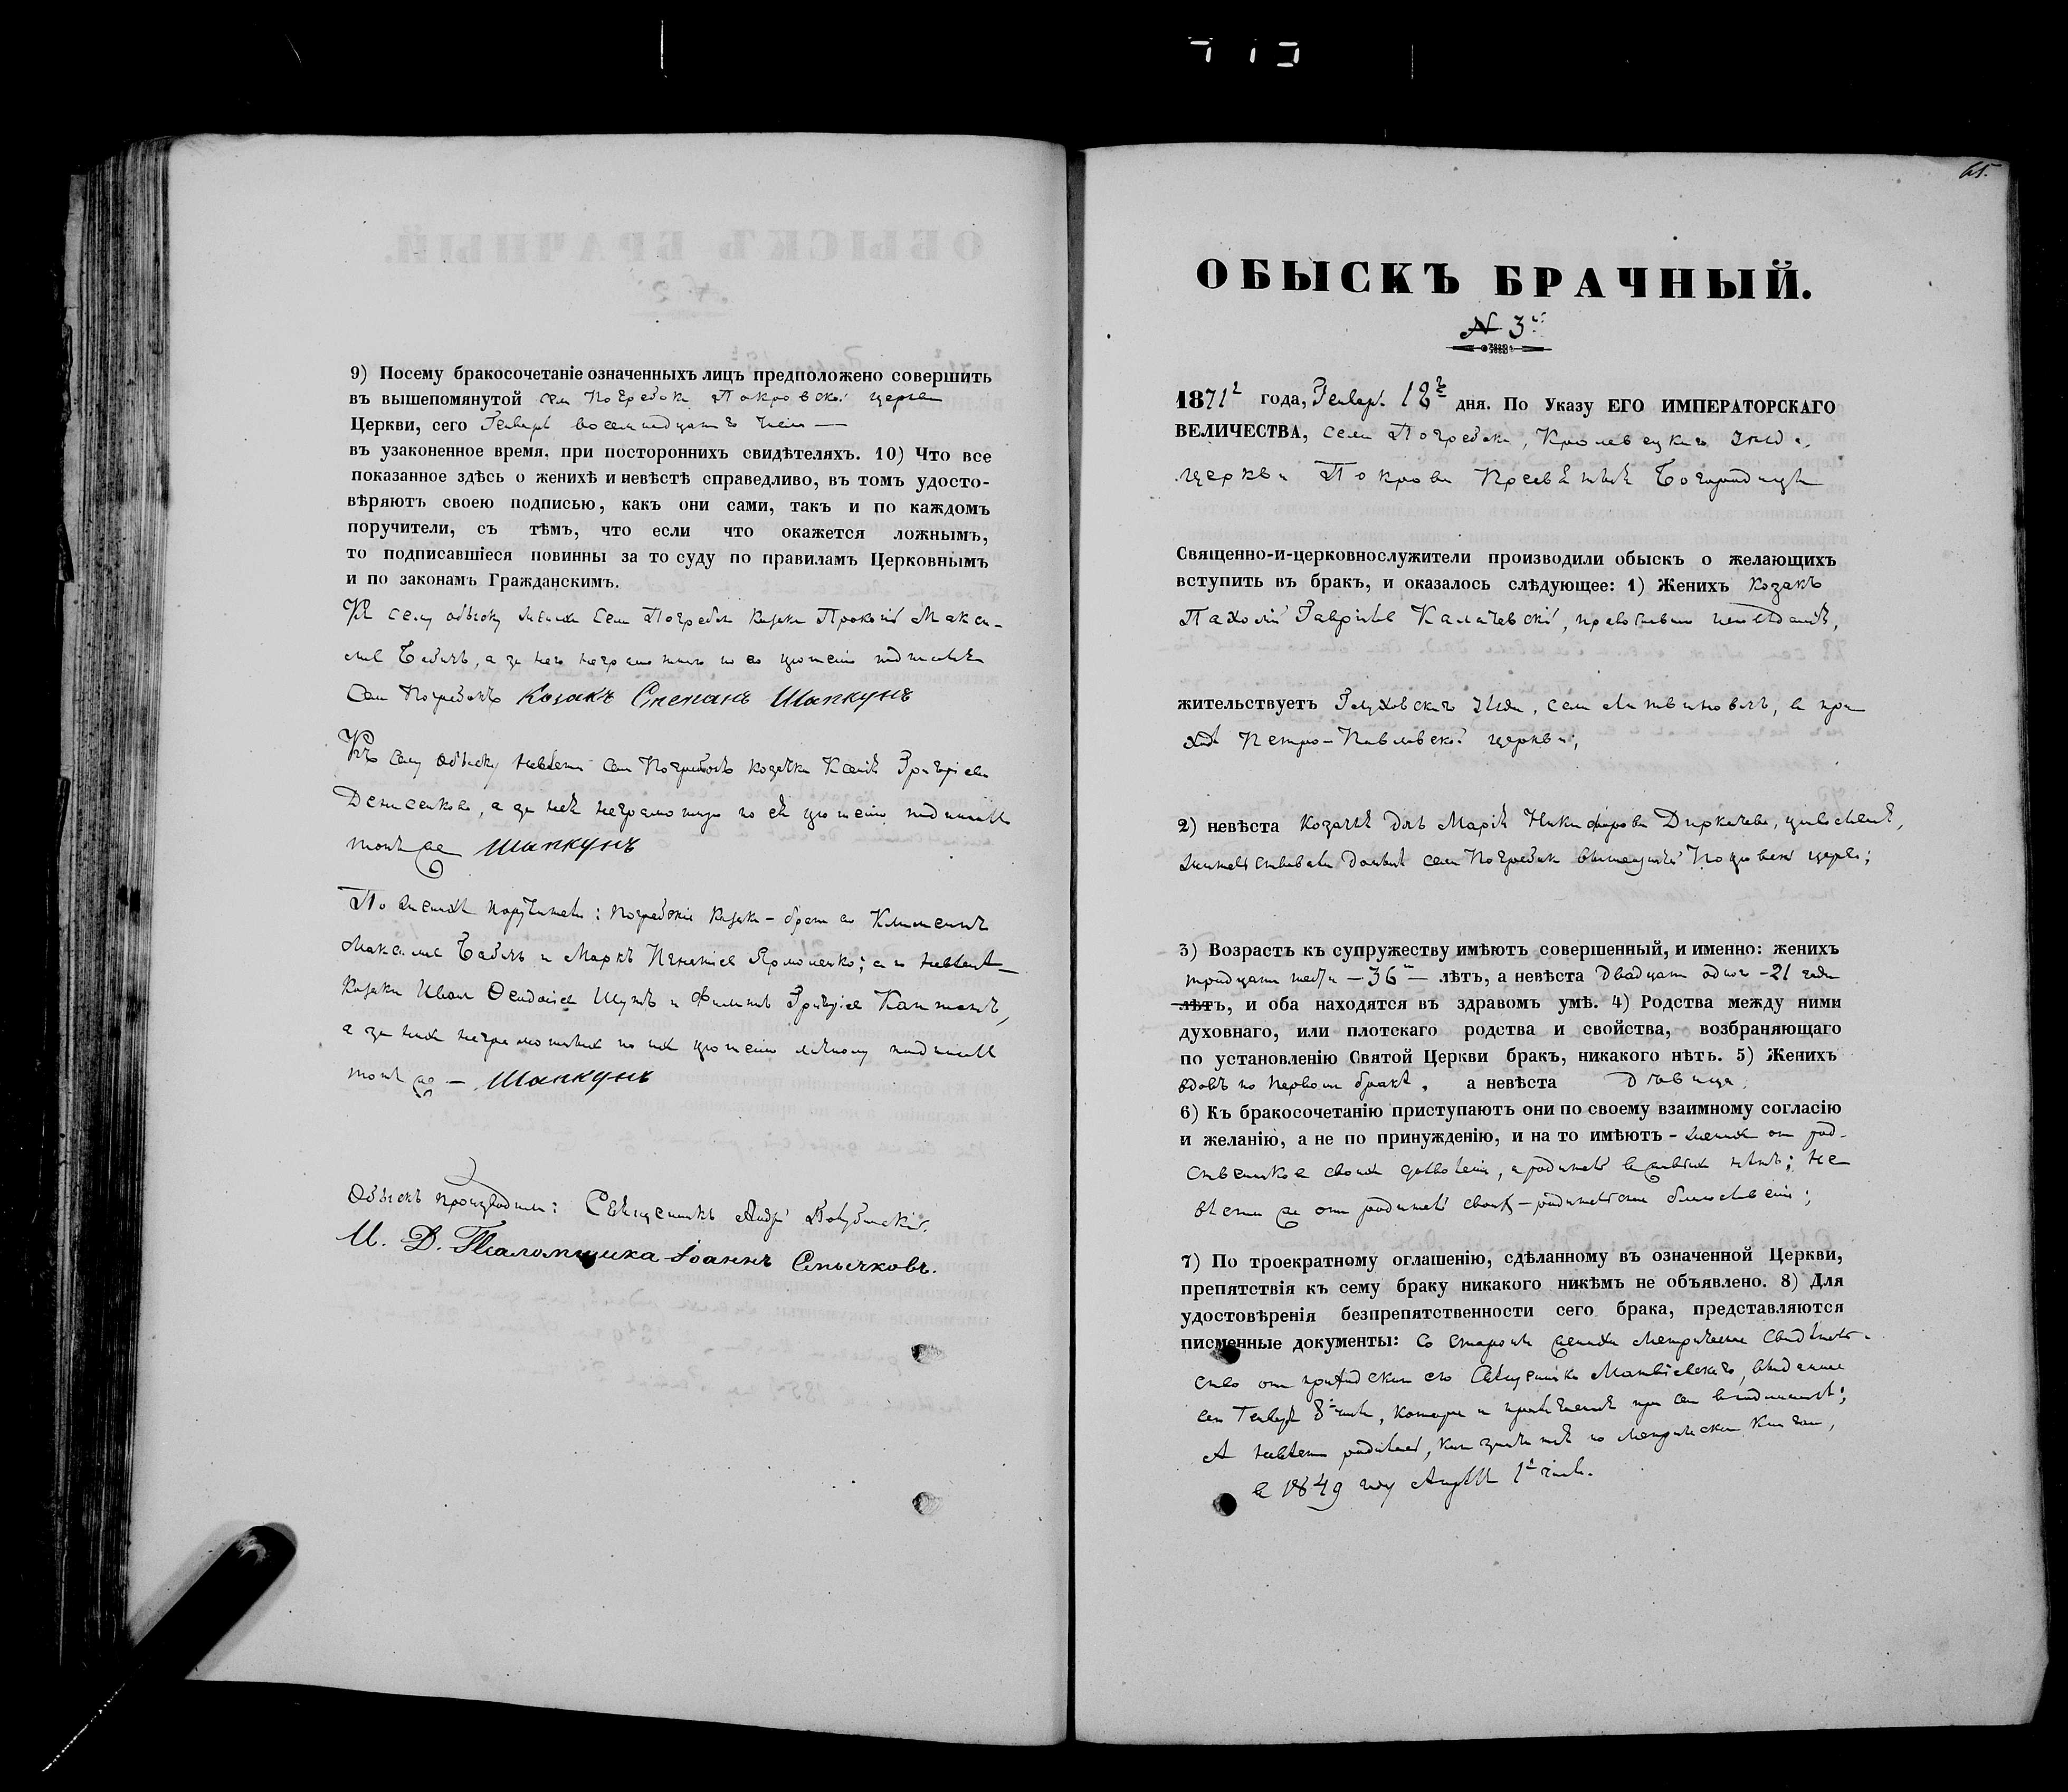 9) Посему бракосочетаніе означенныхъ лицъ предположено совершить
въ вышепомянутой села Погребокъ Покровской церкви
Церкви, сего Генваря восемнадцатаго числа —
въ узаконенное время, при постороннихъ свидѣтеляхъ. 10) Что все
показанное здѣсь о женихѣ и невѣстѣ справедливо, въ томъ удосто-
вѣряютъ своею подписью, какъ они сами, такъ и по каждомъ
поручители, съ тѣмъ, что если что окажется ложнымъ,
то подписавшіеся повинны за то суду по правиламъ Церковнымъ
и по законамъ Гражданскимъ.
Къ сему обыску женихъ села Погребокъ козакъ Прокопій Макси-
мовъ Бабичъ, а за него неграмотнаго по его прошенію подписался
села Погребокъ Козакъ Степанъ Шапкунъ
Къ сему обыску невѣста села Погребокъ козачка Ксенія Григоріева
Денисенкова, а за неё неграмотную по её прошенію подписался
тотъ же Шапкунъ
По женихѣ поручители: Погребскіе козаки – братъ его Климентъ
Максимовъ Бабичъ и Маркъ Ярмоленко; а по невѣстѣ –
Козаки Иванъ Ѳеодосіевъ и Филиппъ Григоріевъ
а за нихъ неграмотныхъ по ихъ прошенію личному подписался
тотъ же – Шапкунъ
Обыскъ производили: Священникъ Андрей
И. Д. Псаломщика Іоаннъ Спычковъ.
65.
ОБЫСКЪ БРАЧНЫЙ.
N 3й
1871 года, Генваря 18 дня. По Указу ЕГО ИМПЕРАТОРСКАГО
ВЕЛИЧЕСТВА, села Погребокъ, Кролевецкаго уѣзда,
церкви Покрова Пресвятыя Богородицы
Священно-и-церковнослужители производили обыскъ о желающихъ
вступить въ бракъ, и оказалось слѣдующее: 1) Женихъ Козакъ
Пахомій Гавріиловъ Калачевскій, православнаго исповѣданія,
жительствуетъ Глуховскаго уѣзда, села Литвиновичъ, въ при
ходѣ Петро-Павловской церкви;
2) невѣста Козачья дочь Марія Никифорова Диркачева,
жительствовала донынѣ села Погребокъ церкви;
3) Возрастъ къ супружеству имѣютъ совершенный, и именно: женихъ
тридцать шесть – 36 – лѣтъ, а невѣста Двадцать одного – 21 года
лѣтъ, и оба находятся въ здравомъ умѣ. 4) Родства между ними
духовнаго, или плотскаго родства и свойства, возбраняющаго
по установленію Святой Церкви бракъ, никакого нѣтъ. 5) Женихъ
вдовъ по первомъ бракѣ, а невѣста Дѣвица.
6) Къ бракосочетанію приступаютъ они по своему взаимному согласію
и желанію, а не по принужденію, и на то имѣютъ – женихъ отъ род-
ственниковъ своихъ дозволеніе, а родителей въ живыхъ нѣтъ; не
вѣста же отъ родителей своихъ – родительское благословеніе;
7) По троекратному оглашенію, сдѣланному въ означенной Церкви,
препятствія къ сему браку никакого никѣмъ не объявлено. 8) Для
удостовѣренія безпрепятственности сего брака, представляются
писменные документы: Со стороны жениха метрическое свидѣтель-
ство отъ приходскаго его Священника Матвіевскаго, выданное
сего Генваря 8 числа, которое и приложено при семъ
А невѣста родилась, какъ значится по метрическимъ книгамъ,
въ 1849 году Апрѣля 1 числа.